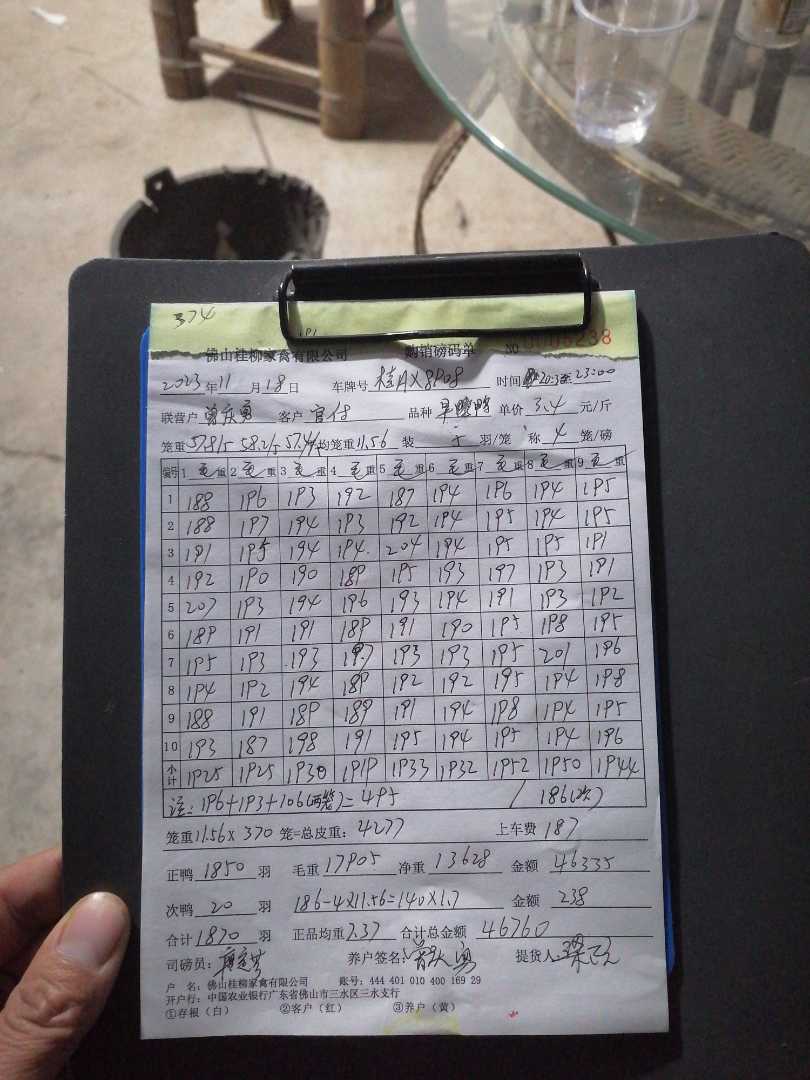 374
佛山桂柳家禽有限公司 购销磅码单 NO 0006238
2023年11月18日 车牌号 桂AX8908 时间 20:3至23:00
联营户 曾庆勇 客户 官付 品种 旱鸭 单价 3.4 元/斤
笼重 57.8/5 58.2/5 57.4/5 均笼重 11.56 装 5 羽/笼 称 4 笼/磅
编号 1 毛重 2 毛重 3 毛重 4 毛重 5 毛重 6 毛重 7 毛重 8 毛重 9 毛重
1 188 196 193 192 187 194 196 194 195
2 188 197 194 193 192 194 195 194 195
3 191 195 194 194 204 194 195 195 191
4 192 190 190 189 195 193 197 193 191
5 207 193 194 196 193 194 191 193 192
6 189 191 191 189 191 190 195 198 195
7 195 193 193 197 193 193 195 201 196
8 194 192 194 189 192 192 195 194 198
9 188 191 189 189 191 194 198 194 195
10 193 187 198 191 195 194 195 194 196
小计 1925 1925 1930 1919 1933 1932 1952 1950 1944
注: 196+193+106(两笼)=495 / 186(次)
笼重 11.56 x 370 笼=总皮重: 4277 上车费 187
正鸭 1850 羽 毛重 17905 净重 13628 金额 46335
次鸭 20 羽 186-4x11.56=140x1.7 金额 238
合计 1870 羽 正品均重 7.37 合计总金额 46760
司磅员: 养户签名: 提货人
户 名: 佛山桂柳家禽有限公司 账号: 444 401 010 400 169 29
开户行: 中国农业银行广东省佛山市三水区三水支行
①存根（白） ②客户（红） ③养户（黄）